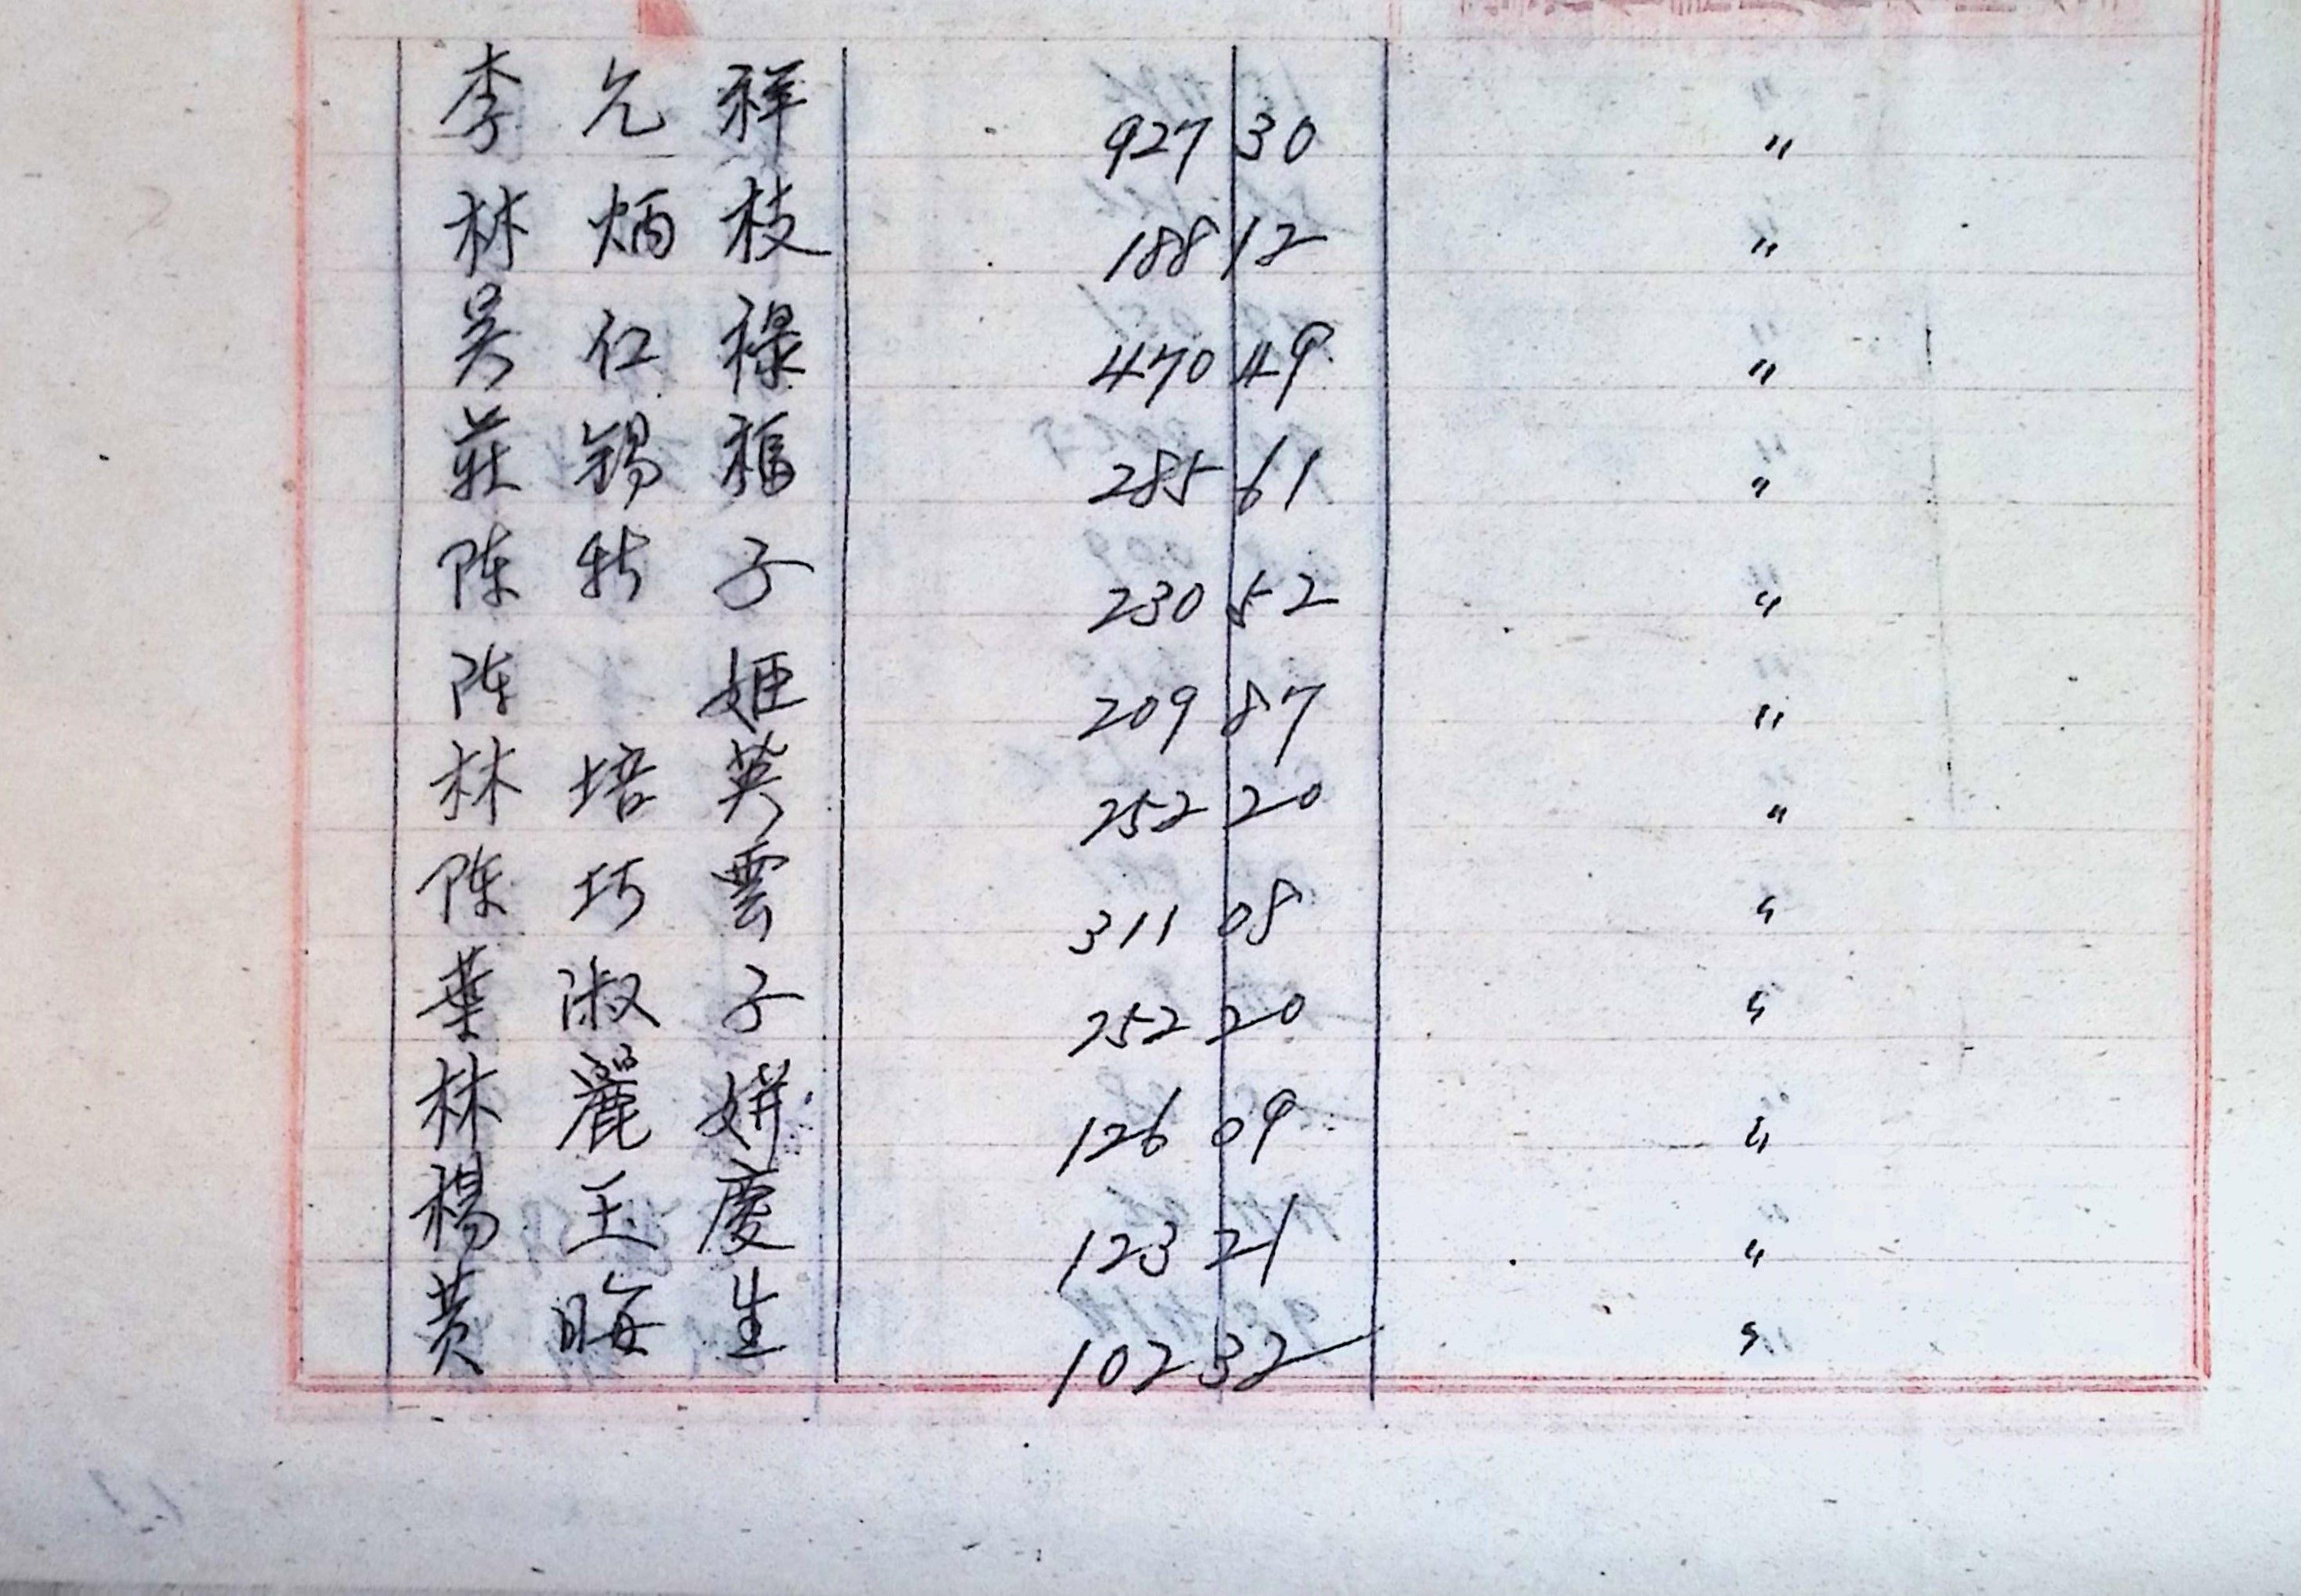 李允祥 927 30 〃
林炳枝 188 12 〃
吳仁祿 470 49 〃
莊錫福 285 61 〃
陳 子 230 52 〃
陳 姬 209 87 〃
林培英 252 20 〃
陳巧雲 311 08 〃
葉淑子 252 20 〃
林麗姘 126 09 〃
楊玉慶 123 21 〃
黃晦生 102 32 〃